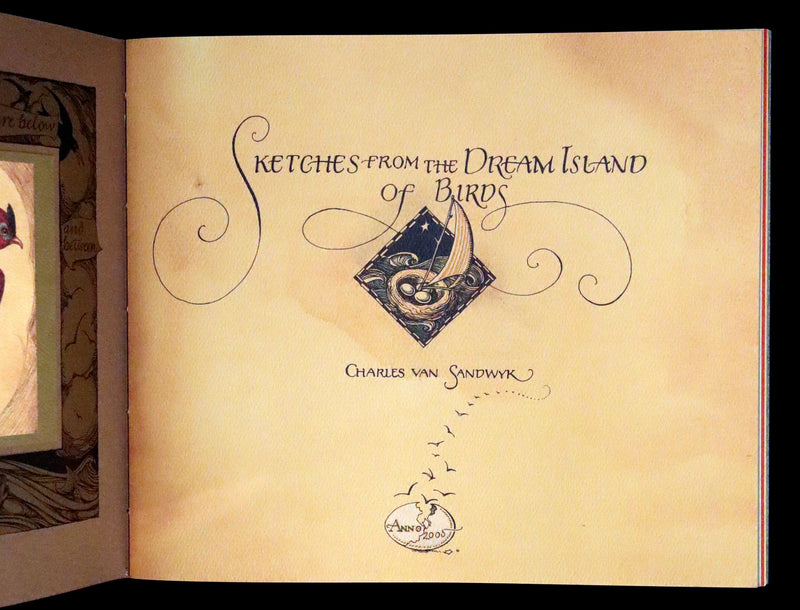 re below
and
between
SKETCHES FROM THE DREAM ISLAND
OF BIRDS
CHARLES VAN SANDWYK
ANNO
2000